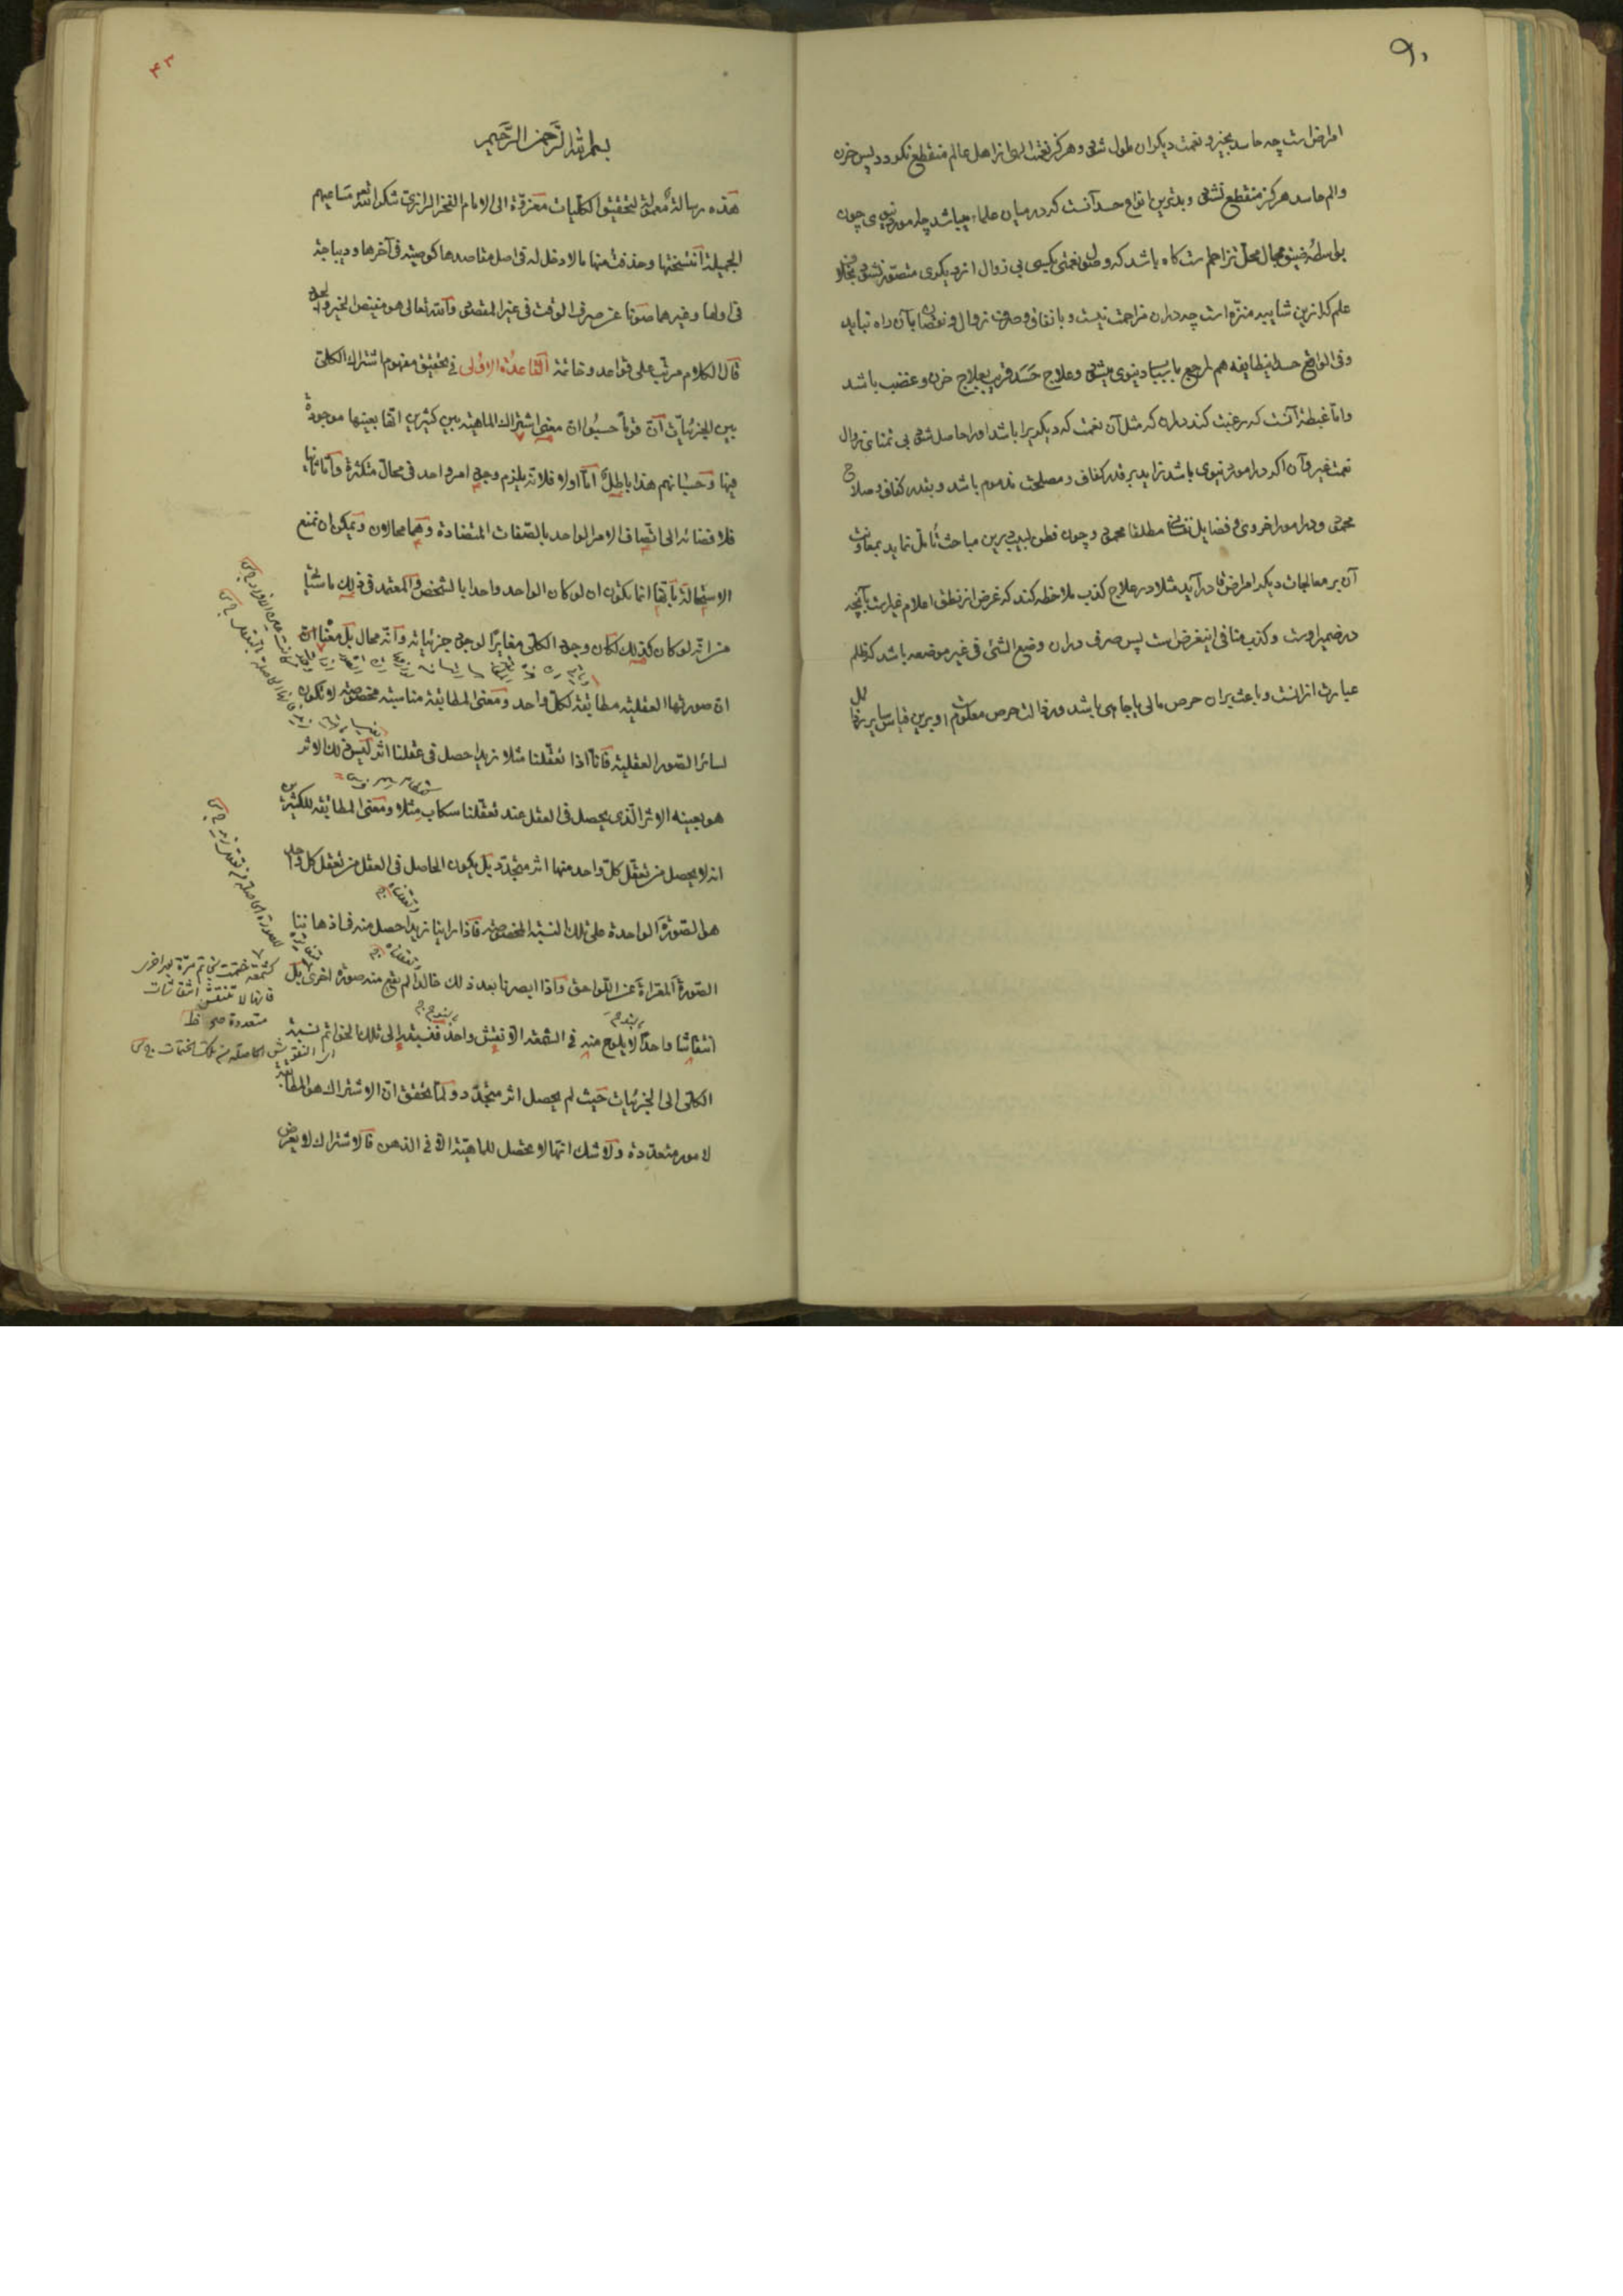 ۹۰
امراضست چه حاسد بخیر و نعمت دیگران ملول شود و هرگز نعمت الهی از اهل عالم منقطع نگردد پس حزن
والم حاسد هرگز منقطع نشود و بدترین انواع حسد آنست که در میان علماء میباشد چه امور دنیوی چون
بواسطهٔ ضیق مجال محل تزاحم است گاه باشد که وصول نعمتی بکسی بی زوال از دیگری متصور نشود بخلاف
علم که ازین شایبه منزه است چه در ان مزاحمت نیست و بانفاق و صرف زوال و نقصان بآن راه نیابد
وفی الواقع حسد اینطایفه هم راجع باسباب دنیوی میشود و علاج حسد قریب بعلاج حزن و غضب باشد
واما غبطه آنست که رغبت کند در آن که مثل آن نعمت که دیگریرا باشد او را حاصل شود بی تمنای زوال
نعمت غیر و آن اگر در امور دنیوی باشد زاید بر قدر کفاف و مصلحت مذموم باشد و بقدر کفاف و صلاح
محمود و در امور اخروی و فضایل نفسانی مطلقا محمود و چون فطن لبیب برین مباحث تأمل نماید بمعاونت
آن بر معالجات دیگر امراض قادر آید مثلا در علاج کذب ملاحظه کند که غرض از نطق اعلام غیرست بآنچه
در ضمیر اوست و کذب منافی اینغرض است پس صرف در ان وضع الشئ فی غیر موضعه باشد که ظلم
عبارت از انست و باعث بر ان حرص مالی یا جاهی باشد و رذالت حرص معلوم است و برین قیاس سایر رذایل
۴۳
بسم الله الرحمن الرحیم
هذه رسالة معمولة لتحقیق الکلیات معزوة الی الامام الفخر الرازی شکر الله مساعیهم
الجمیلة انتسختها وحذفت منها ما لا دخل له فی اصل مقاصدها کوصیته فی آخرها ودیباجة
فی اولها وغیرها صونا عن صرف الوقت فی غیر المقصود والله تعالی هو مفیض الخیر والجود
قال الکلام مرتب علی قواعد وخاتمة القاعدة الاولی فی تحقیق مفهوم اشتراک الکلی
بین الجزئیات ان قوما حسبوا ان معنی اشتراک الماهیة بین کثیرین انها بعینها موجودة
فیها وحسبانهم هذا باطل اما اولا فلانه یلزم وجود امر واحد فی محال متکثرة واما ثانیا
فلافضائه الی اتصاف الامر الواحد بالصفات المتضادة وهما محالان ویمکن ان تمنع
الاستحالة بانها انما یکون ان لو کان الواحد واحدا بالشخص والمعتمد فی ذلک ما سنح لنا
من انه لو کان کذلک لکان وجود الکلی مغایرا لوجود جزئیاته وانه محال بل معناه ان
ان صورتها العقلیة مطابقة لکل واحد ومعنی المطابقة مناسبة مخصوصة لا تکون
لسائر الصور العقلیة فانا اذا تعقلنا مثلا زیدا حصل فی عقلنا اثر لیس ذلک الاثر
هو بعینه الاثر الذی یحصل فی العقل عند تعقلنا سکاب مثلا ومعنی المطابقة للکثیرین
انه لا یحصل من تعقل کل واحد منها اثر متجدد بل یکون الحاصل فی العقل من تعقل کل واحد
هو الصورة الواحدة علی تلک النسبة المخصوصة فاذا راینا زیدا حصل منه فی اذهاننا
الصورة المعراة عن اللواحق واذا ابصرنا بعد ذلک خالدا لم یقع منه صورة اخری بل
انتقاشا واحدا لا یلوح منه فی الشمعة الا نقش واحد فنسبته الی تلک الخواتم نسبة
الکلی الی الجزئیات حیث لم یحصل اثر متجدد ولما تحقق ان الاشتراک هو المطابقة
لامور متعددة ولا شک انها لا تحصل للماهیة الا فی الذهن فالاشتراک لا یعرض
کشمعة ختمت بخاتم مرة بعد اخری
فانها لا تنتقش انتقاشات
متعددة